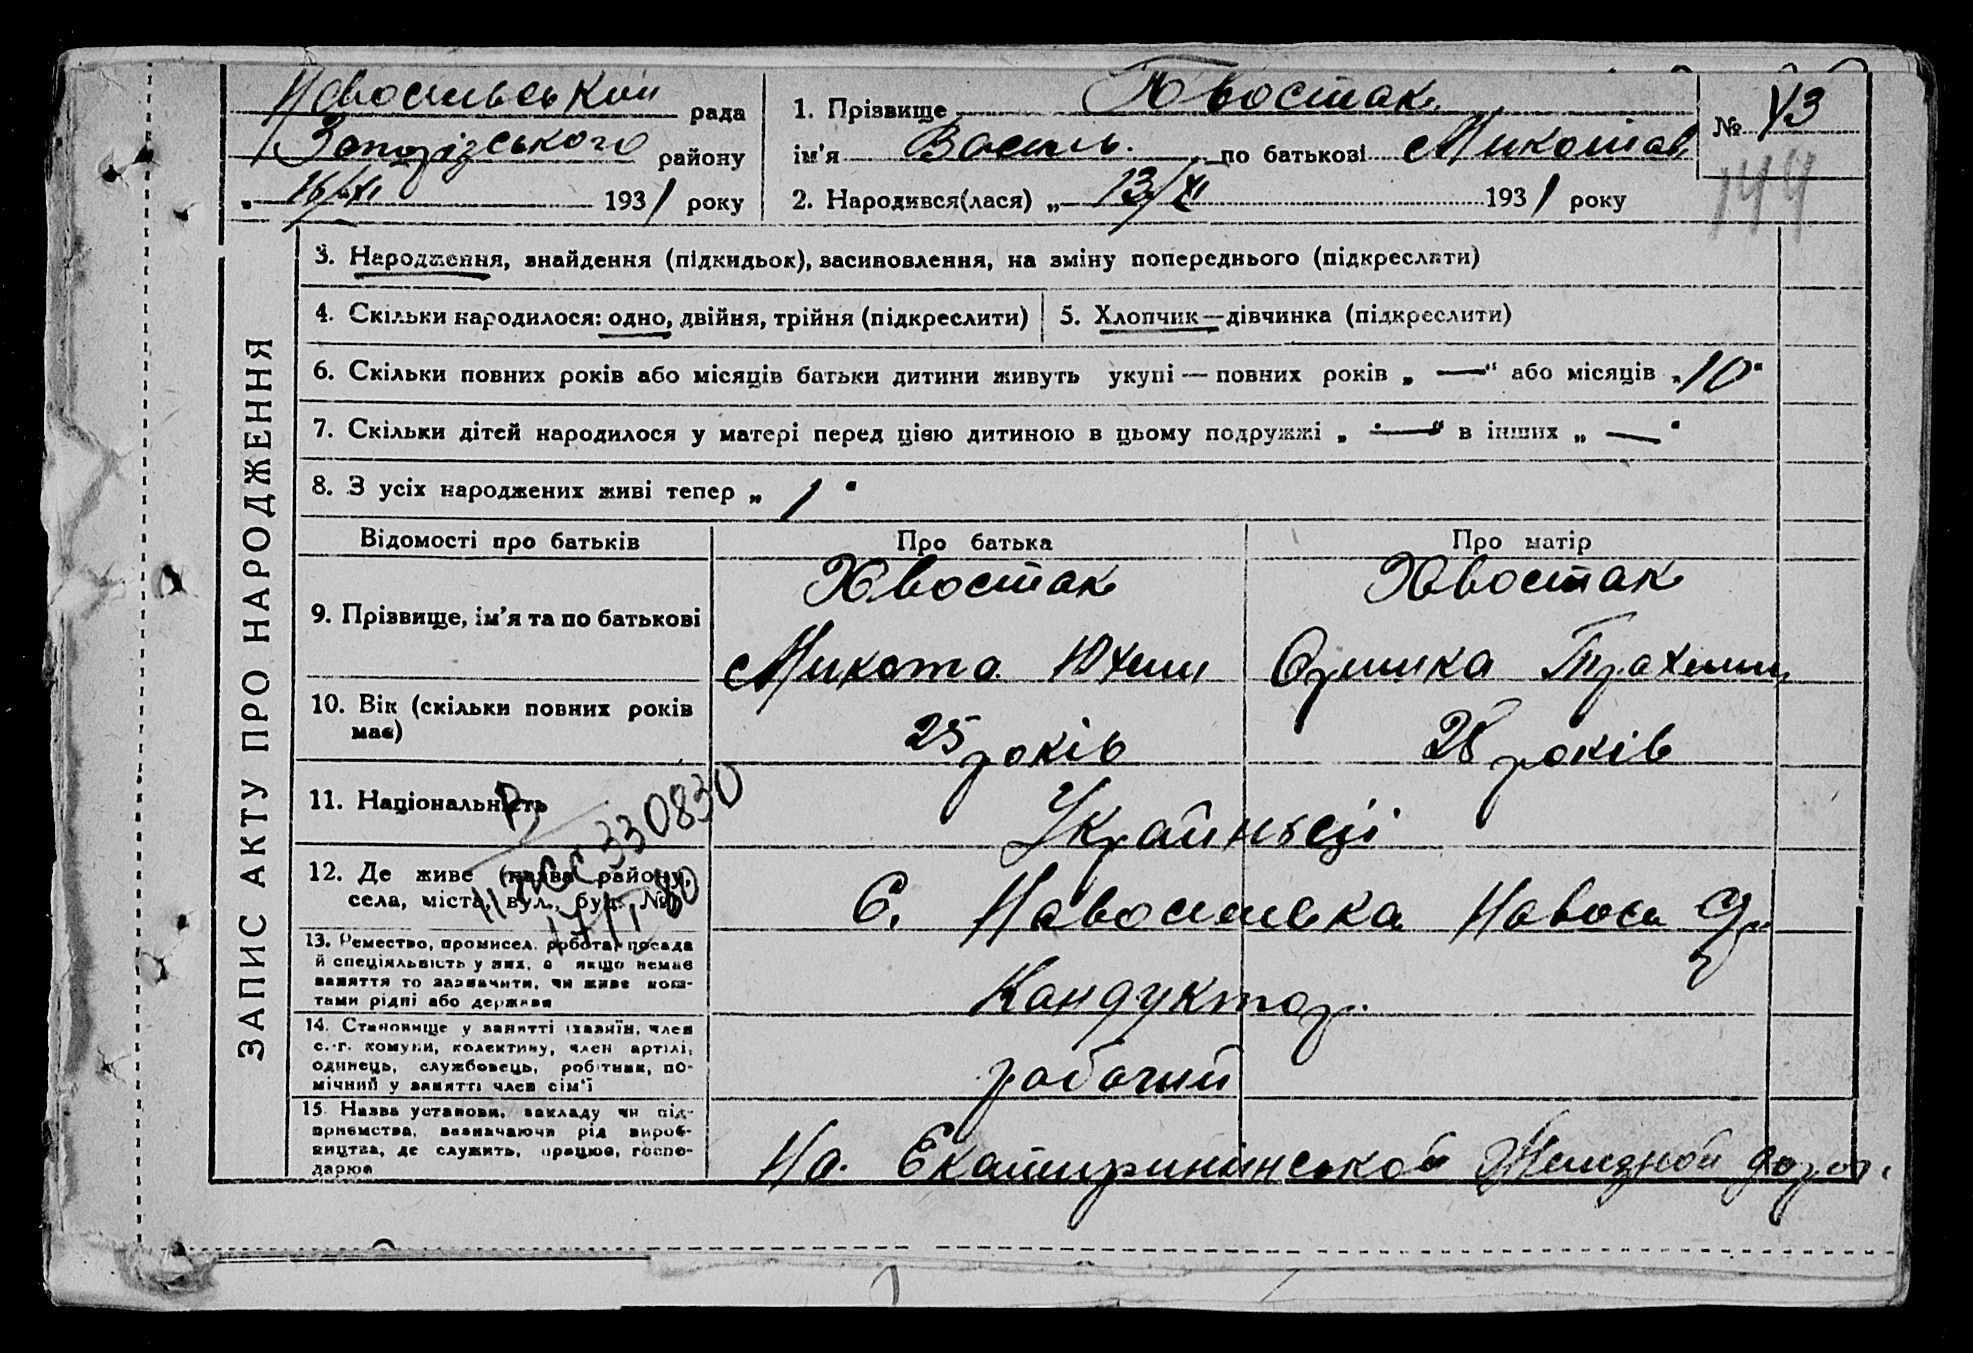 рада
Запорізського району
16/XI 1931 року
1. Прізвище Хвостак
ім'я Василь по батькові Миколаів
2. Народився(лася) „ 13/XI 1931 року
№ 43
144
ЗАПИС АКТУ ПРО НАРОДЖЕННЯ
3. Народження, знайдення (підкидьок), засиновлення, на зміну попереднього (підкреслити)
4. Скільки народилося: одно, двійня, трійня (підкреслити)
5. Хлопчик—дівчинка (підкреслити)
6. Скільки повних років або місяців батьки дитини живуть укупі — повних років „ — “ або місяців „ 10 "
7. Скільки дітей народилося у матері перед цією дитиною в цьому подружжі „ — " в інших „ — "
8. З усіх народжених живі тепер „ 1 "
Відомості про батьків
Про батька
Про матір
9. Прізвище, ім'я та по батькові
Хвостак
Микола Юхим
Хвостак
Оришка Трохим
10. Вік (скільки повних років
має)
25 років
28 років
11. Національність
Україньці
330830
12. Де живе (назва району,
села, міста, вул., буд. №)
С. Новосилівка Новос
13. Ремество, промисел, робота, посада
й спеціяльність у них, а якщо немає
заняття то зазначити, чи живе кош-
тами рідні або держави
Кондуктор.
14. Становище у занятті (хазяїн, член
с.-г. комуни, колективу, член артілі,
одинець, службовець, робітник, по-
мічний у занятті член сім'ї
рабочий
15. Назва установи, закладу чи під-
приємства, зазначаючи рід вироб-
ництва, де служить, працює, госпо-
дарює
На. Екатириниінской Желизной дорог.